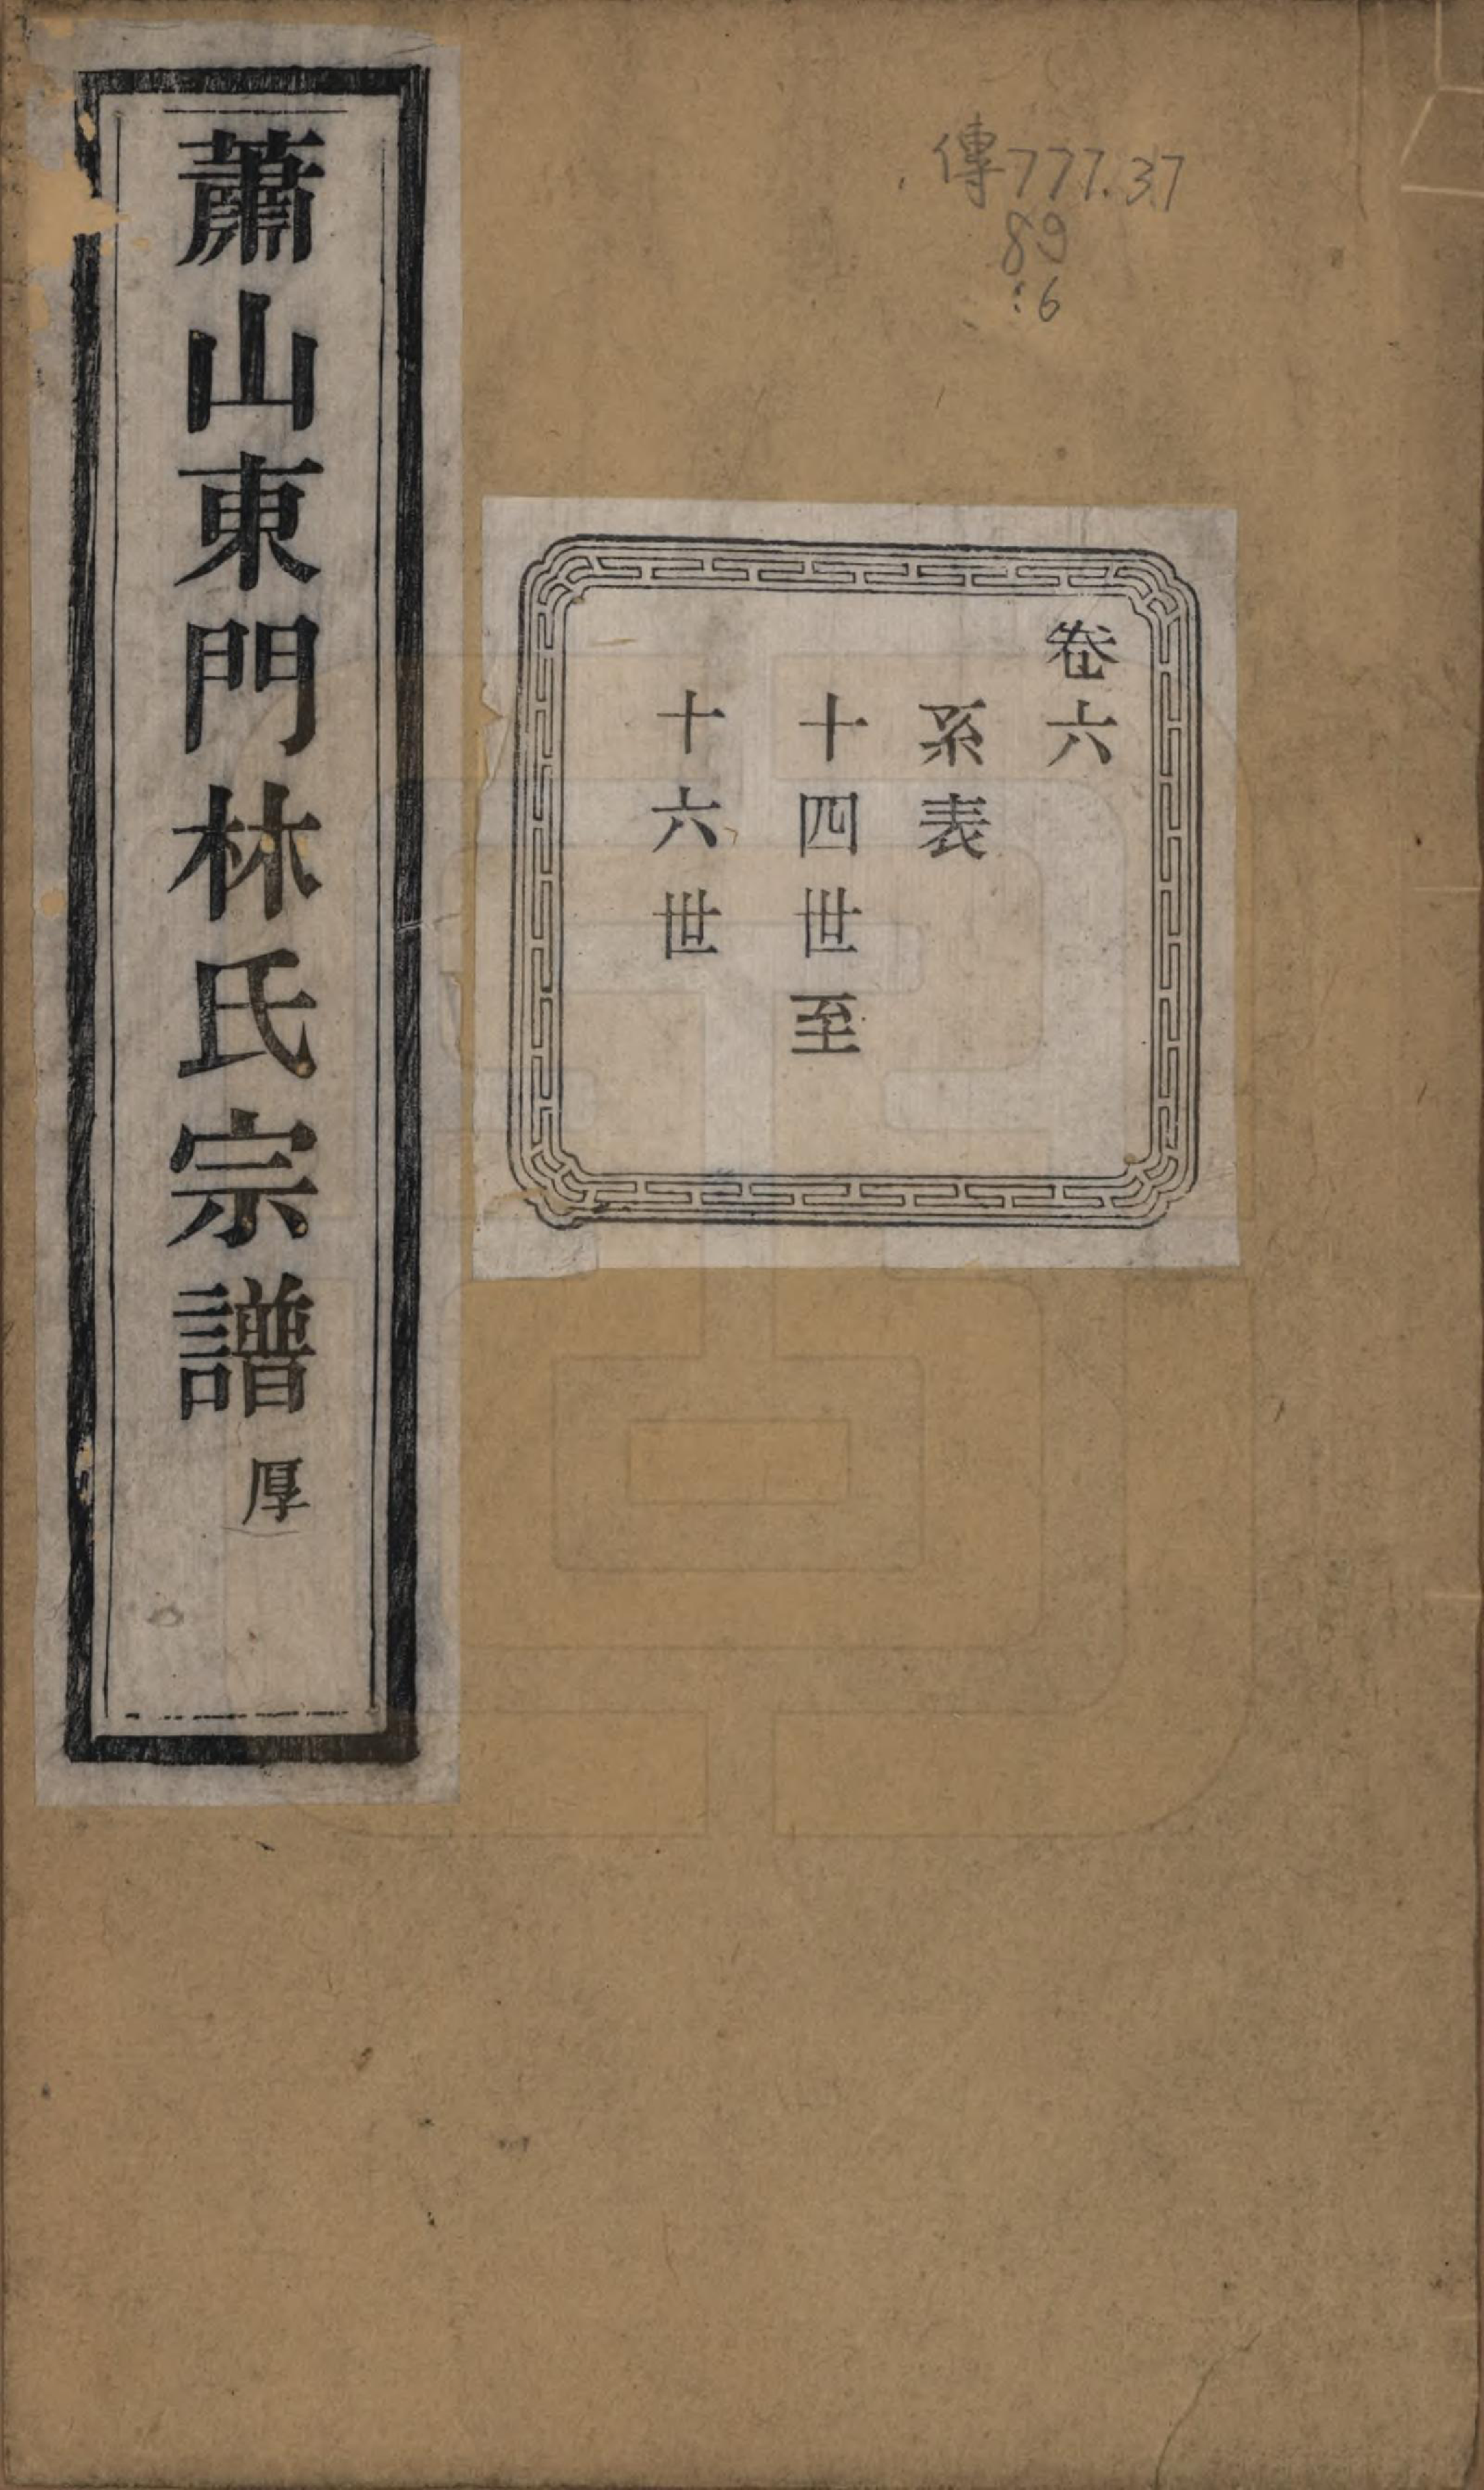 傳777.37
89
:6
卷六
系表
十四世至
十六世
蕭山東門林氏宗譜 厚